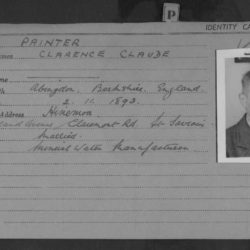 P
IDENTITY CA
PAINTER
CLARENCE CLAUDE
Abingdon, Berkshire, England.
2. 11. 1893.
Address
Claremont Rd. St Saviours
Mineral Water Manufacturer